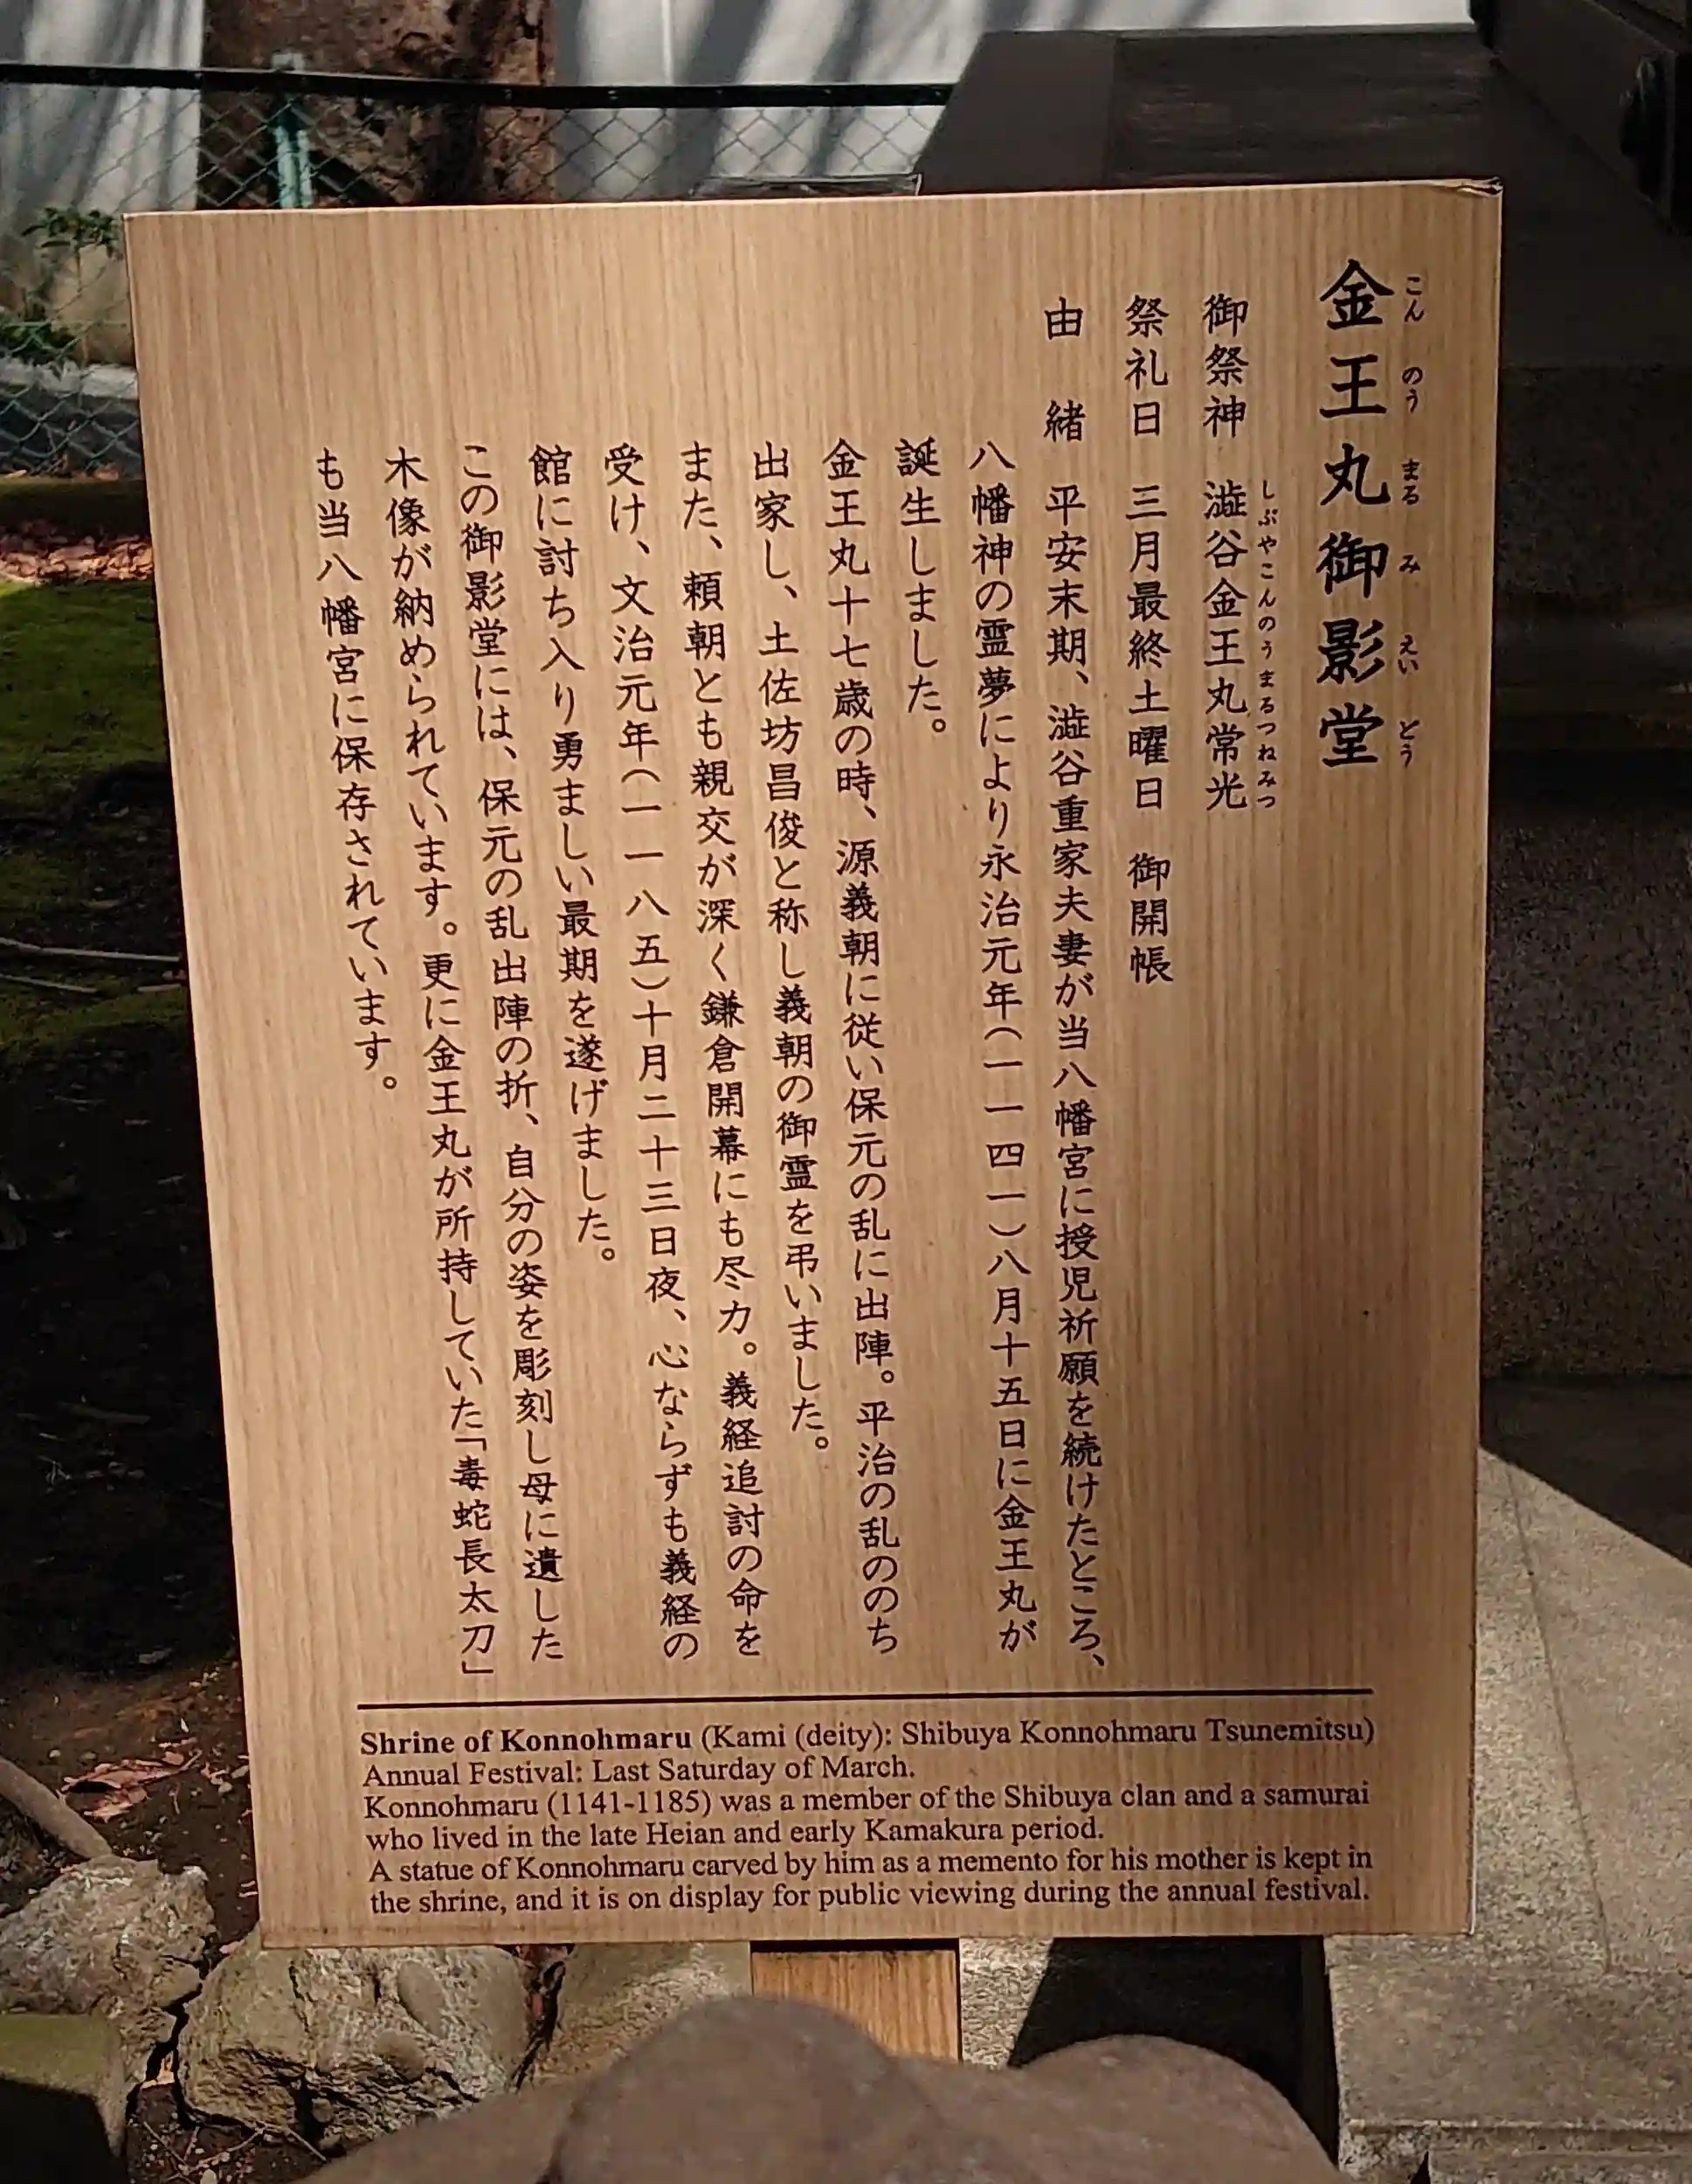 金王丸御影堂
こんのうまるみえいどう
御祭神 澁谷金王丸常光
しぶやこんのうまるつねみつ
祭礼日 三月最終土曜日 御開帳
由緒 平安末期、澁谷重家夫妻が当八幡宮に授児祈願を続けたところ、
八幡神の霊夢により永治元年(一一四一)八月十五日に金王丸が
誕生しました。
金王丸十七歳の時、源義朝に従い保元の乱に出陣。平治の乱ののち
出家し、土佐坊昌俊と称し義朝の御霊を弔いました。
また、頼朝とも親交が深く鎌倉開幕にも尽力。義経追討の命を
受け、文治元年(一一八五)十月二十三日夜、心ならずも義経の
館に討ち入り勇ましい最期を遂げました。
この御影堂には、保元の乱出陣の折、自分の姿を彫刻し母に遺した
木像が納められています。更に金王丸が所持していた「毒蛇長太刀」
も当八幡宮に保存されています。
Shrine of Konnohmaru (Kami (deity): Shibuya Konnohmaru Tsunemitsu)
Annual Festival: Last Saturday of March.
Konnohmaru (1141-1185) was a member of the Shibuya clan and a samurai
who lived in the late Heian and early Kamakura period.
A statue of Konnohmaru carved by him as a memento for his mother is kept in
the shrine, and it is on display for public viewing during the annual festival.